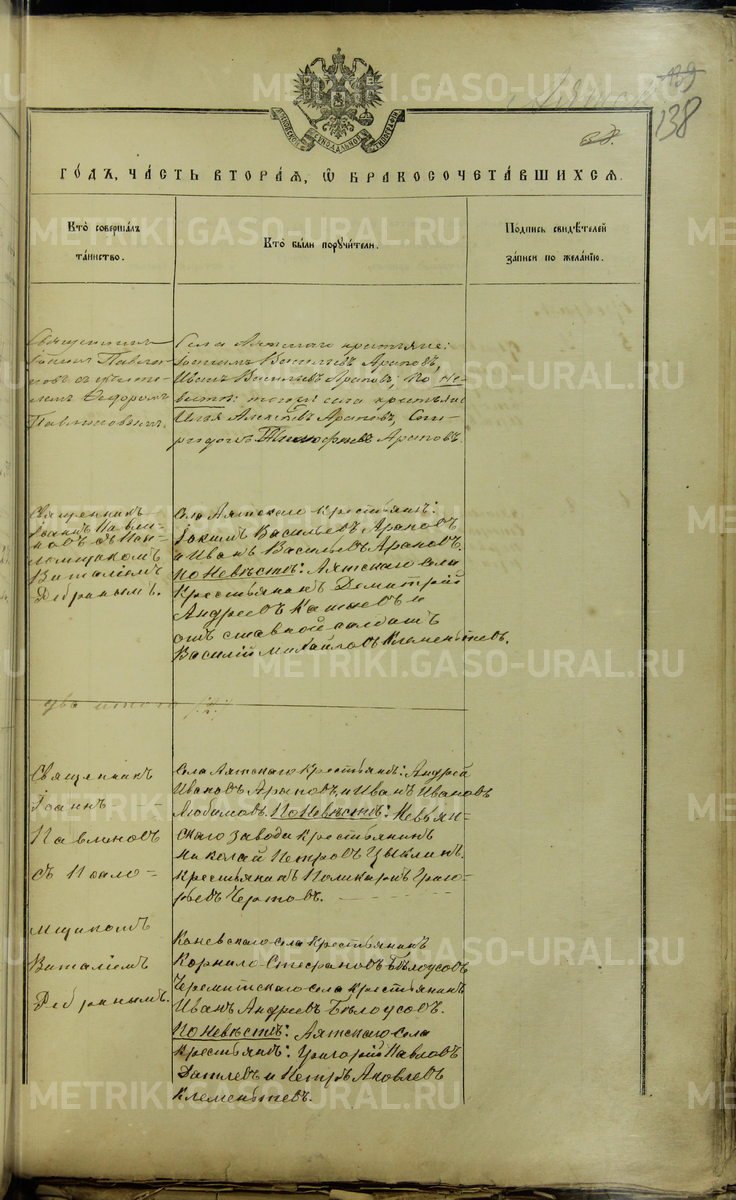 METRIKI.GASO-URAL.RU
138
МОСКОВСКОЙ СѴНОДАЛЬНОЙ ТИПОГРАФІИ
ГО́ДЪ, ЧА́СТЬ ВТОРА́Я, Ѡ҆ БРАКОСОЧЕТА́ВШИХСЯ.
Кто̀ соверша́лъ
та́инство.
Кто̀ бы́ли порꙋчи́тели.
По́дпись свидѣ́телей
за́писи по жела́нїю.
Священникъ
Іоаннъ Павли-
новъ съ
Ѳедоромъ
Села Аятскаго крестьяне:
Іоакимъ Васильевъ Араповъ,
Иванъ Васильевъ Араповъ; По не-
вѣстѣ: того же села крестьяне
Илья Алексѣевъ Араповъ, Спи-
ридонъ Тимофеевъ Араповъ.
Священникъ
Іоаннъ Павли-
новъ съ Пса-
ломщикомъ
Виталіемъ
Ребринымъ.
Села Аятскаго крестьяне:
Іокимъ Васильевъ Араповъ
и Иванъ Васильевъ Араповъ.
По Невѣстѣ: Аятскаго села
Крестьянинъ Димитрій
Андреевъ и
отставной солдатъ
Василій Михайловъ Клементьевъ.
два итого
Священникъ
Іоаннъ
Павлиновъ
съ Псало-
мщикомъ
Виталіемъ
Ребринымъ.
Села Аятскаго крестьяне: Андрей
Ивановъ Араповъ, и Иванъ Ивановъ
Любимовъ. По Невѣстѣ: Невьян-
скаго завода крестьянинъ
Николай Петровъ Цыклинъ.
крестьянинъ Поликарпъ Григо-
рьевъ Чертовъ.
Каневскаго села крестьянинъ
Корнило Стефановъ Бѣлоусовъ
Черемисскаго села крестьянинъ
Иванъ Андреевъ Бѣлоусовъ.
По Невѣстѣ: Аятскаго села
крестьяне: Григорій Павловъ
и Петръ Яковлевъ
Клементьевъ.